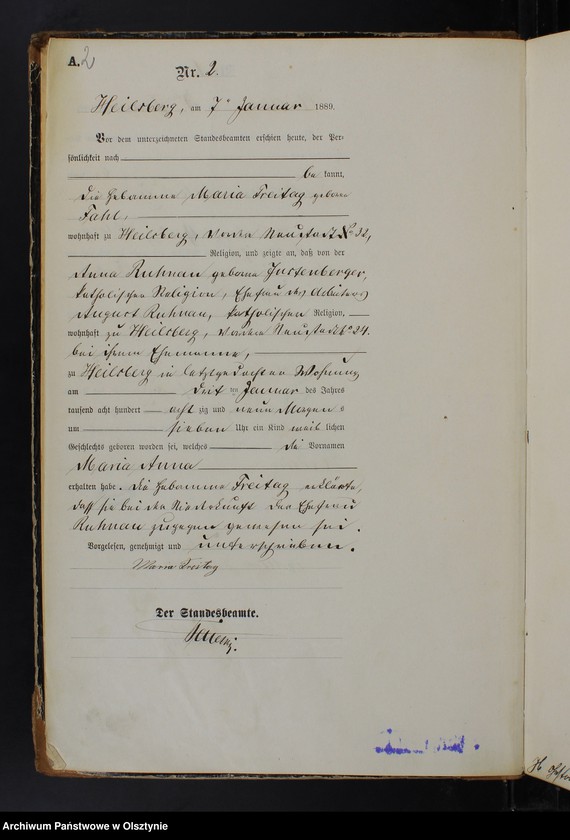 A. 2
Nr. 2.
Heilsberg, am 7n Januar 1889.
Vor dem unterzeichneten Standesbeamten erschien heute, der Per-
sönlichkeit nach
be kannt,
die Hebamme Maria Freitag geborene
Fahl,
wohnhaft zu Heilsberg, Vordere Neustadt No 32,
Religion, und zeigte an, daß von der
Anna Ruhnau geborene Justenberger,
katholischer Religion, Ehefrau des Arbeiters
August Ruhnau, katholischer Religion,
wohnhaft zu Heilsberg, Vordere Neustadt No 24.
bei ihrem Ehemanne,
zu Heilsberg in letztgedachter Wohnung
am dritten Januar des Jahres
tausend acht hundert acht zig und neun Morgens
um sieben Uhr ein Kind weib lichen
Geschlechts geboren worden sei, welches die Vornamen
Maria Anna
erhalten habe. Die Hebamme Freitag erklärte,
daß sie bei der Niederkunft der Ehefrau
Ruhnau zugegen gewesen sei.
Vorgelesen, genehmigt und unterschrieben.
Maria Freitag
Der Standesbeamte.
Archiwum Państwowe w Olsztynie